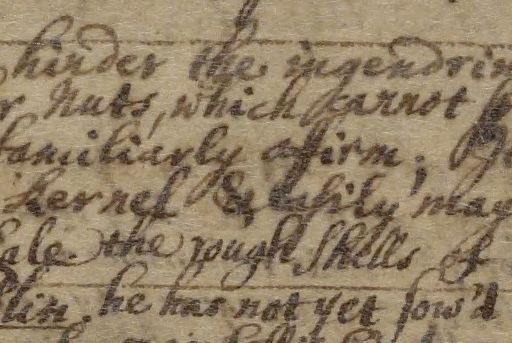 hinder the ingendrin
Nuts, which cannot
familiarly afirm;
kernel & easily may
the rough Shells of
he has not yet sow'd